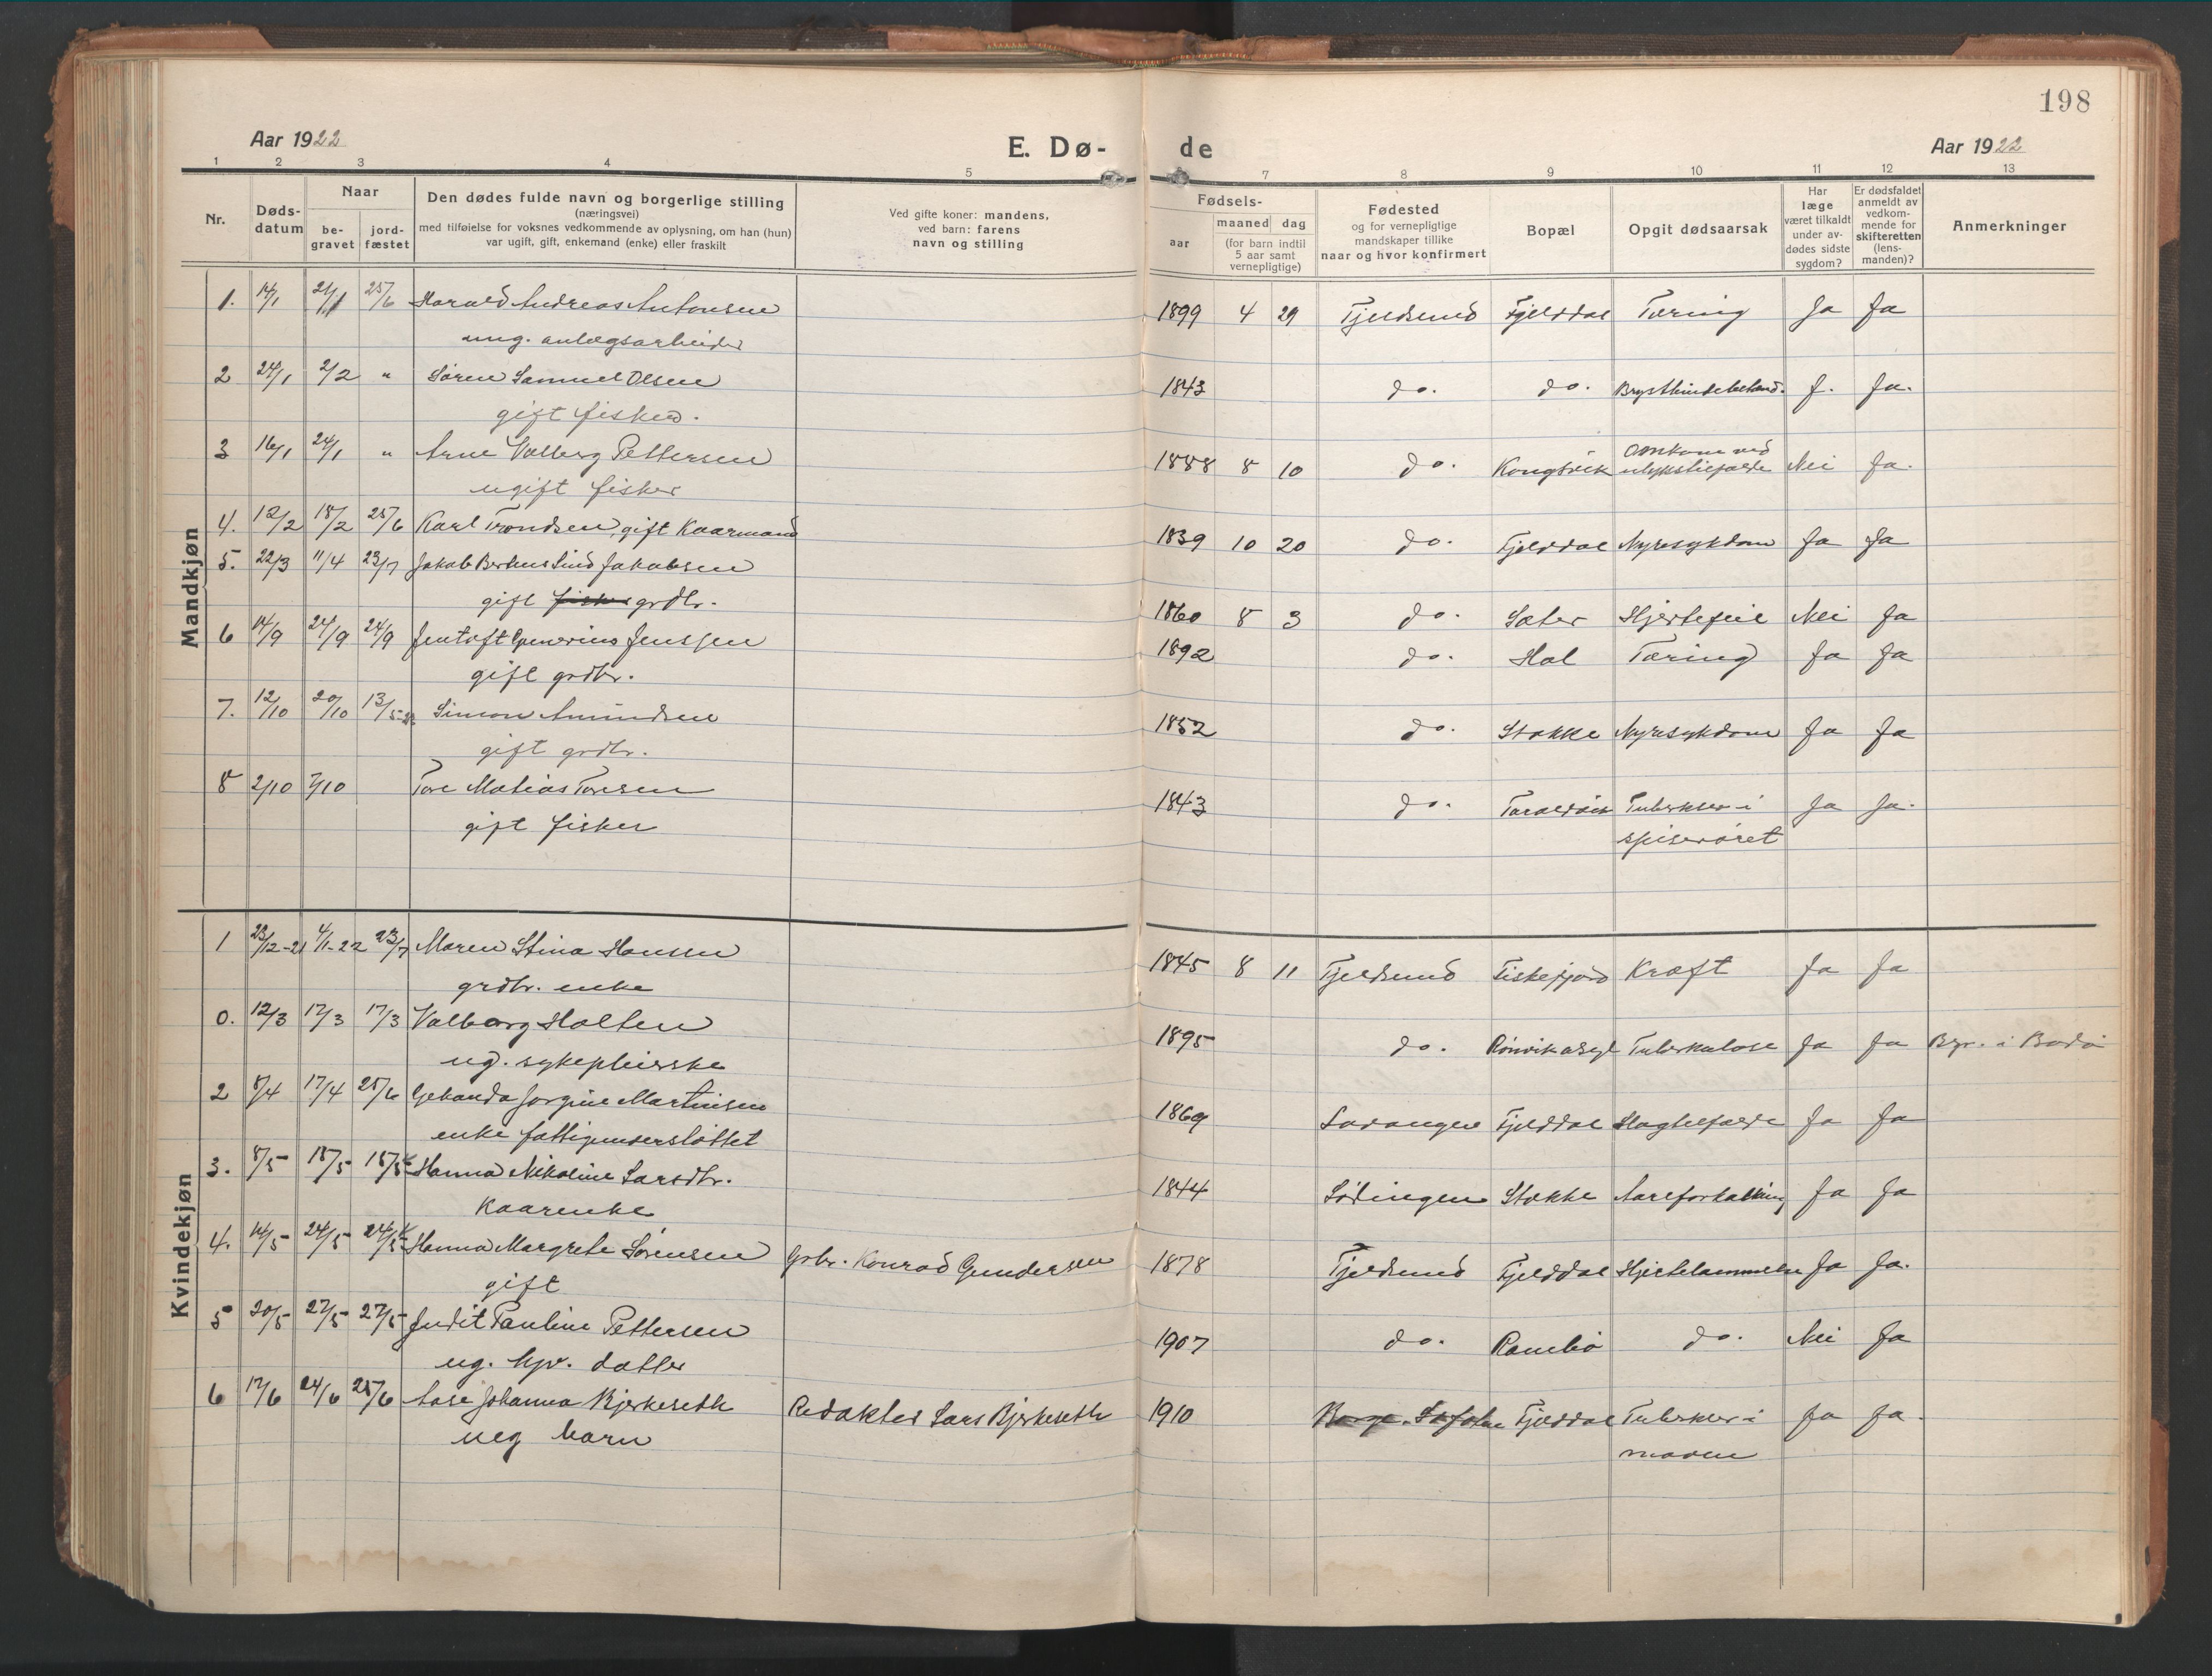 198
Aar 1922
E. Dø-
de
Aar 1922
1 2 3 4 5 7 8 9 10 11 12 13
Nr.
Døds-
datum
Naar
be-
gravet
jord-
fæstet
Den dødes fulde navn og borgerlige stilling
(næringsvei)
med tilføielse for voksnes vedkommende av oplysning, om han (hun)
var ugift, gift, enkemand (enke) eller fraskilt
Ved gifte koner: mandens,
ved barn: farens
navn og stilling
Fødsels-
aar
maaned dag
(for barn indtil
5 aar samt
vernepligtige)
Fødested
og for vernepligtige
mandskaper tillike
naar og hvor konfirmert
Bopæl
Opgit dødsaarsak
Har
læge
været tilkaldt
under av-
dødes sidste
sygdom?
Er dødsfaldet
anmeldt av
vedkom-
mende for
skifteretten
(lens-
manden)?
Anmerkninger
Mandkjøn
1. 14/1 21/1 25/6 Harald Andreas Antonsen 1899 4 29 Tjeldsund Fjelddal Tæring Ja Ja
ung. anlægsarbeider
2 24/1 2/2 " Søren Samuel Olsen 1843 do. do. J. Ja.
gift fisker.
3 16/1 24/1 " Arne Valberg Pettersen 1888 8 10 do. Kongsvik Omkom ved ulykkestilfælde Nei Ja.
ugift fisker
4. 12/2 18/2 25/6 Karl Trondsen, gift Kaarmand 1839 10 20 do. Fjelddal Nyresykdom Ja Ja
5. 22/3 11/4 23/7 Jakob Berhus Lind Jakobsen
gift fisker grdbr. 1860 8 3 do. Sæter Hjertefeil Nei Ja
6 14/9 24/9 24/9 Jentoft Jenssen 1892 do. Hol Tæring Ja Ja
gift grdbr.
7. 12/10 20/10 13/5-23 Simon Amundsen 1852 do. Stokke Nyresykdom Ja Ja
gift grdbr.
8 2/10 7/10 Tore Matias Toresen 1843 do. Taraldvik Tuberkler i Ja Ja.
gift fisker spiserøret
Kvindekjøn
1 23/12-21 4/1-22 23/7 Maren Stina Hansen 1845 8 11 Tjeldsund Fiskefjord Kræft Ja Ja
grdbr. enke
0. 12/3 17/3 17/3 Valborg Holten 1895 do. Rønvik asyl Tuberkulose Ja Ja Bgr. i Bodø
ug. sykepleierske
2 8/4 17/4 25/6 Gekanda Jorgine Martinsen 1869 Salangen Fjelddal Slagtilfælde Ja Ja
enke fattigunderstøttet
3. 8/5 18/5 18/5 Hanna Nikoline Larsdtr. 1844 Lødingen Stokke Aareforkalkning Ja Ja
Kaarenke
4. 14/5 24/5 24/5 Hanna Margrete Sørensen Grbr. Konrad Gundersen 1878 Tjeldsund Fjelddal Hjertelammelse Ja Ja.
gift
5 20/5 27/5 27/5 Judit Pauline Pettersen 1907 do. Rambø do. Nei Ja
ug. hjv. datter
6 17/6 24/6 25/6 Aase Johanna Bjerkeseth Redaktør Lars Bjerkeseth 1910 Fjelddal Tuberkler i Ja Ja.
ug barn maven